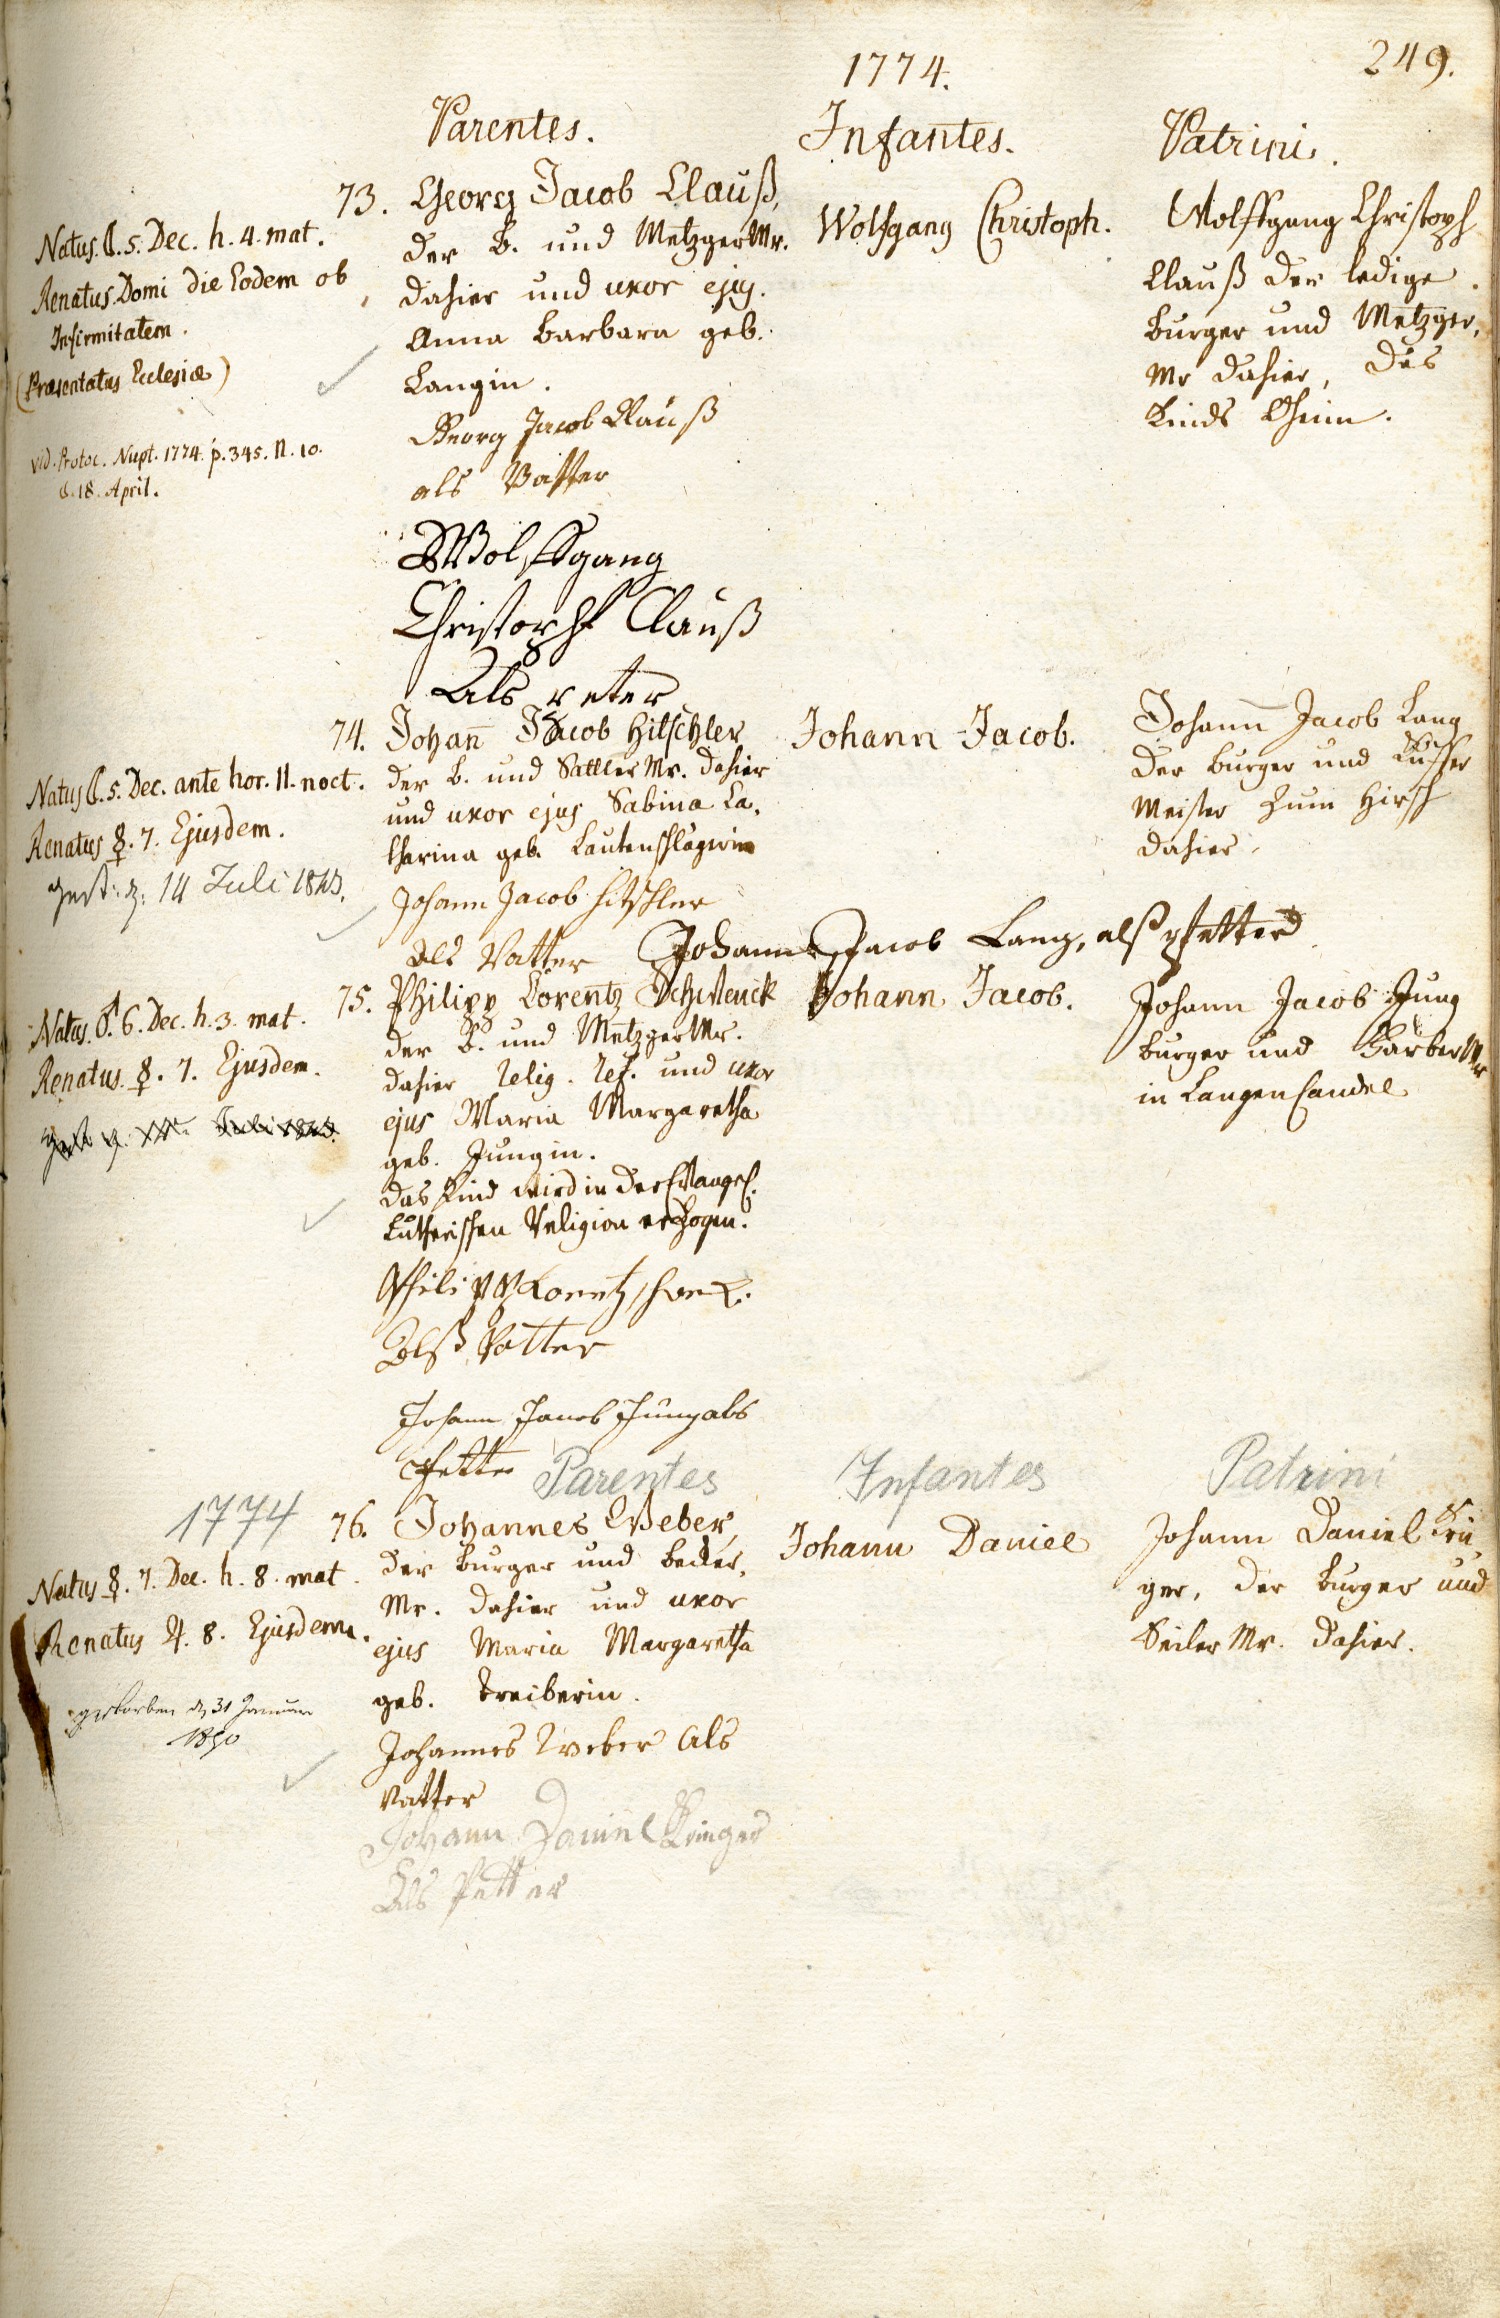 1774.
249.
Parentes.
Infantes.
Patrini.
Natus. ☾. 5. Dec. h. 4. mat.
Renatus Domi die Eodem ob
Infirmitatem.
(Præsentatus Ecclesiæ)
vid. Protoc. Nupt. 1774. p. 345. N. 10.
d. 18. April.
73. Georg Jacob Clauß,
der B. und Metzger Mr.
dahier und uxor ejus.
Anna Barbara geb.
Langin.
Georg Jacob Clauß
als Vatter
Wolffgang
Christoph Clauß
Als peter
Wolfgang Christoph.
Wolffgang Christoph
Clauß der ledige
Burger und Metzger,
Mr dahier, des
Kinds Oheim.
Natus ☾. 5. Dec. ante hor. 11. noct.
Renatus ☿. 7. Ejusdem.
gest. d. 14 Juli 1843.
74. Johan̄ Jacob Hitschler
der B. und Sattler Mr. dahier
und uxor ejus Sabina Ca,
tharina geb. Lautenschlägerin
Johann Jacob Hitschler
als Vatter
Johann Jacob Lang, alß pfetter
Johann Jacob.
Johann Jacob Lang
der Burger und Kuffer
Meister zum Hirsch
dahier.
Natus. ♂. 6. Dec. h. 3. mat.
Renatus. ☿. 7. Ejusdem.
75. Philipp Lorentz Schwenck
der B. und Metzger Mr.
dahier relig. ref. und uxor
ejus Maria Margaretha
geb. Jungin.
das Kind wird in der Evangel.
Lutherischen Religion erzogen.
Philipp Lorentz
Alß Vatter
Johann Jacob Jung als
Pfetter
Johann Jacob.
Johann Jacob Jung
Burger und Gärber Mr
in LangenCandel
1774
Parentes
Infantes
Patrini
Natus ☿. 7. Dec. h. 8. mat.
Renatus ♃. 8. Ejusdem.
gestorben d 31 Januar
1850
76. Johannes Weber,
der Burger und Becker,
Mr. dahier und uxor
ejus Maria Margaretha
geb. Treiberin.
Johannes Weber Als
Vatter
Johann Daniel Krieger
Als Petter
Johann Daniel
Johann Daniel Krü,
ger, der Burger und
Seiler Mr. dahier.